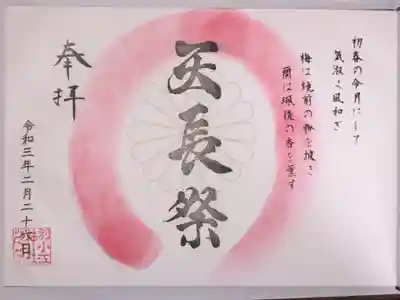 初春の令月にして
氣淑く風和ぎ
梅は鏡前の粉を披き
蘭は珮後の香を薫す
天長祭
奉拝
令和三年二月二十
別小江